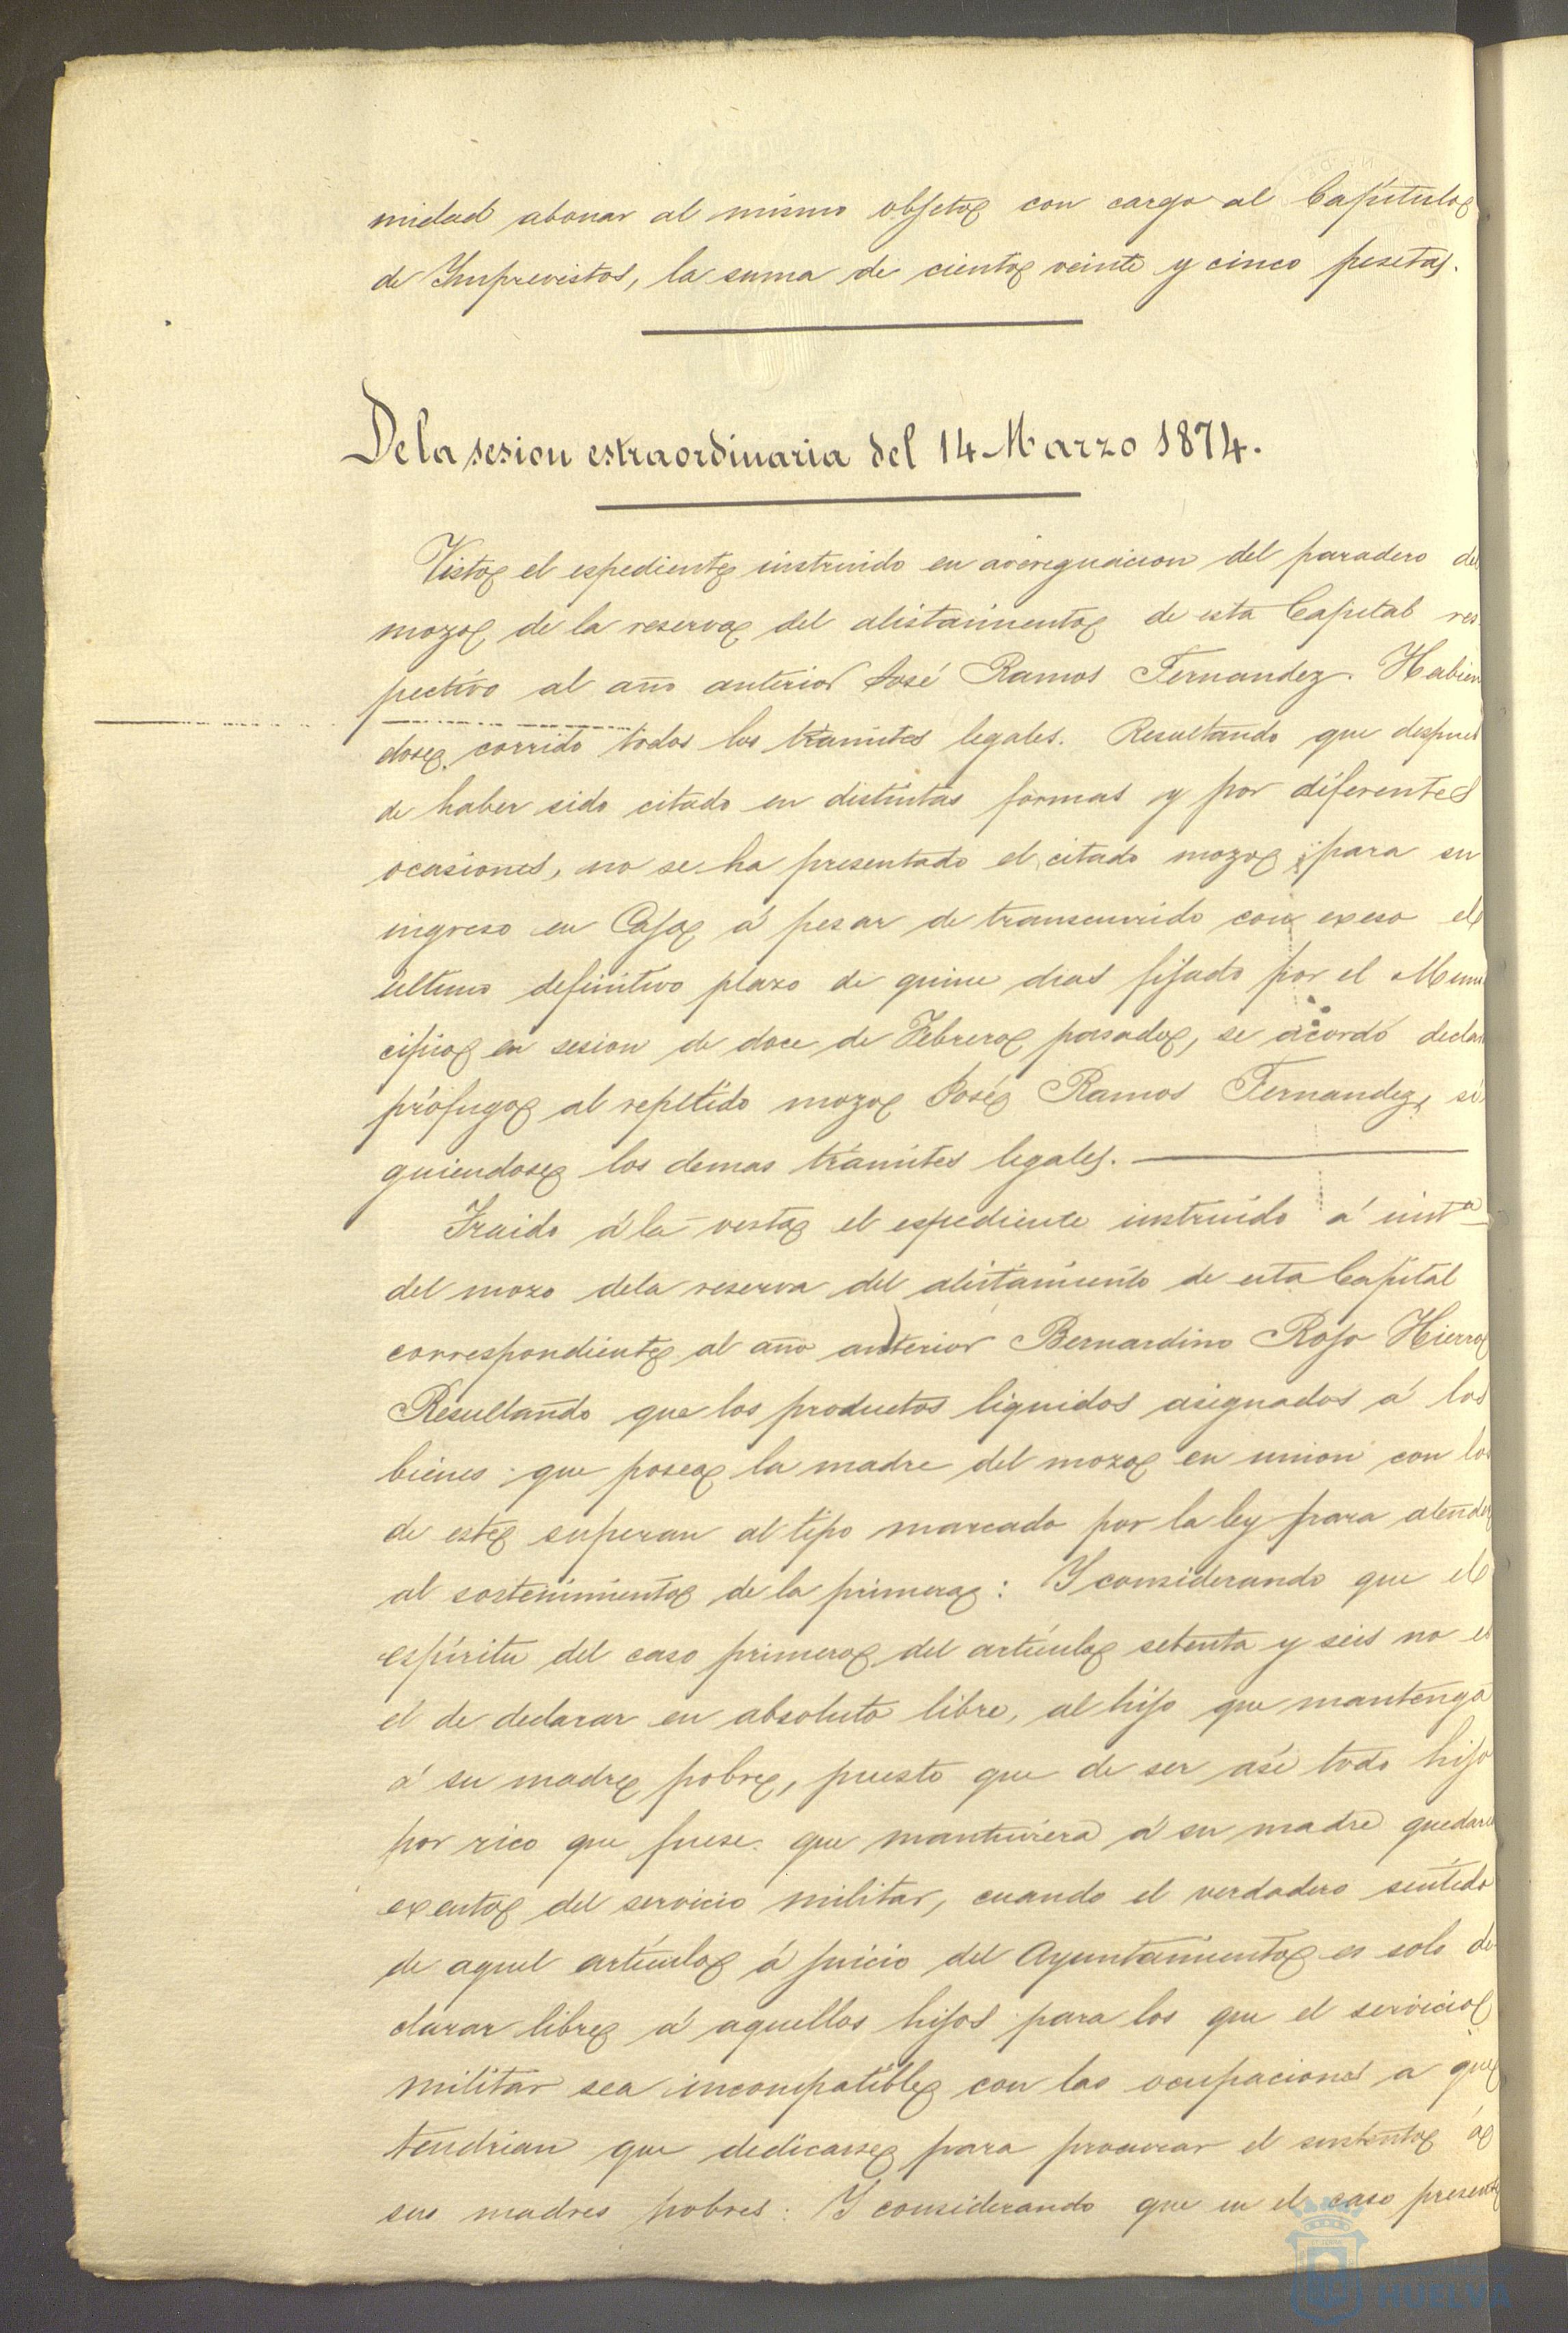 midad abonar al mismo objeto con cargo al Capítulo
de Imprevistos, la suma de ciento veinte y cinco pesetas.
De la sesion estraordinaria del 14 Marzo 1874.
Visto el espediente instruido en avereguacion del paradero del
mozo de la reserva del alistamiento de esta Capital res
pectivo al año anterior José Ramos Fernandez. Habien
dose corrido todos los trámites legales. Resultando que despues
de haber sido citado en distintas formas y por diferentes
ocasiones, no se ha presentado el citado mozo para su
ingreso en Caja á pesar de transcurrido con exeso el
último definitivo plazo de quince dias fijado por el Muni
cipio en sesion de doce de Febrero pasado, se acordó declar
prófugo al repetido mozo José Ramos Fernandez, si
guiendose los demas trámites legales.
Traido á la vista el espediente instruido á instª
del mozo dela reserva del alistamiento de esta Capital
correspondiente al año anterior Bernardino Rojo Hierro
Resultando que los productos liquidos asignados á los
bienes que posea la madre del mozo en union con los
de este superan al tipo marcado por la ley para atender
al sostenimiento de la primera: Y considerando que el
espíritu del caso primero del artículo setenta y seis no es
el de declarar en absoluto libre, al hijo que mantenga
á su madre pobre, puesto que de ser asi todo hijo
por rico que fuese que mantuviera á su madre quedara
exento del servicio militar, cuando el verdadero sentido
de aquel artículo á juicio del Ayuntamiento es solo de
clarar libre á aquellos hijos para los que el servicio
militar sea incompatible con las ocupaciones a que
tendrian que dedicarse para procurar el sustento á
sus madres pobres: Y considerando que en el caso presente
HUELVA